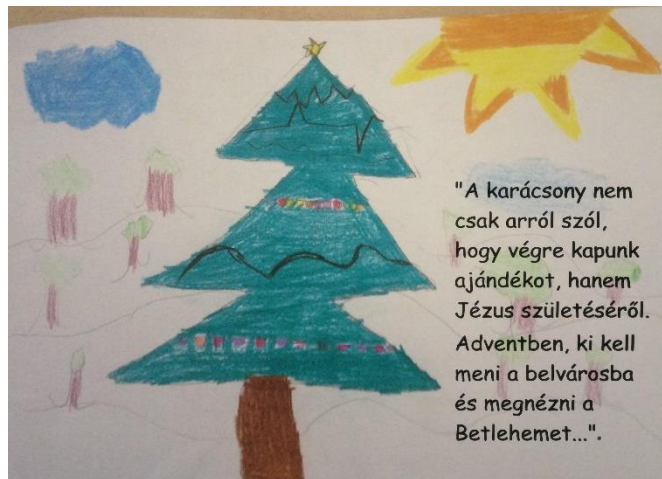 "A karácsony nem
csak arról szól,
hogy végre kapunk
ajándékot, hanem
Jézus születéséről.
Adventben, ki kell
meni a belvárosba
és megnézni a
Betlehemet...".